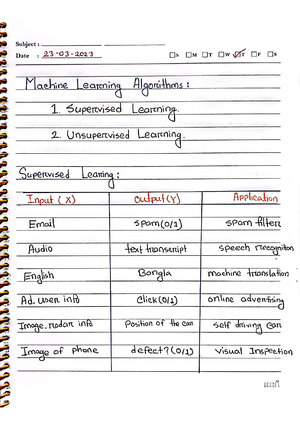 Subject :
Date : 23-03-2023 S M T W T F S
Machine Learning Algorithms :
1. Supervised Learning.
2. Unsupervised Learning.
Supervised Learning :
Input (X) Output (Y) Application
Email spam (0/1) spam filter
Audio text transcript speech recogniton
English Bangla machine translation
Ad, user info click (0/1) online advertising
Image, radar info Position of the car self driving car
Image of phone defect? (0/1) Visual Inspection